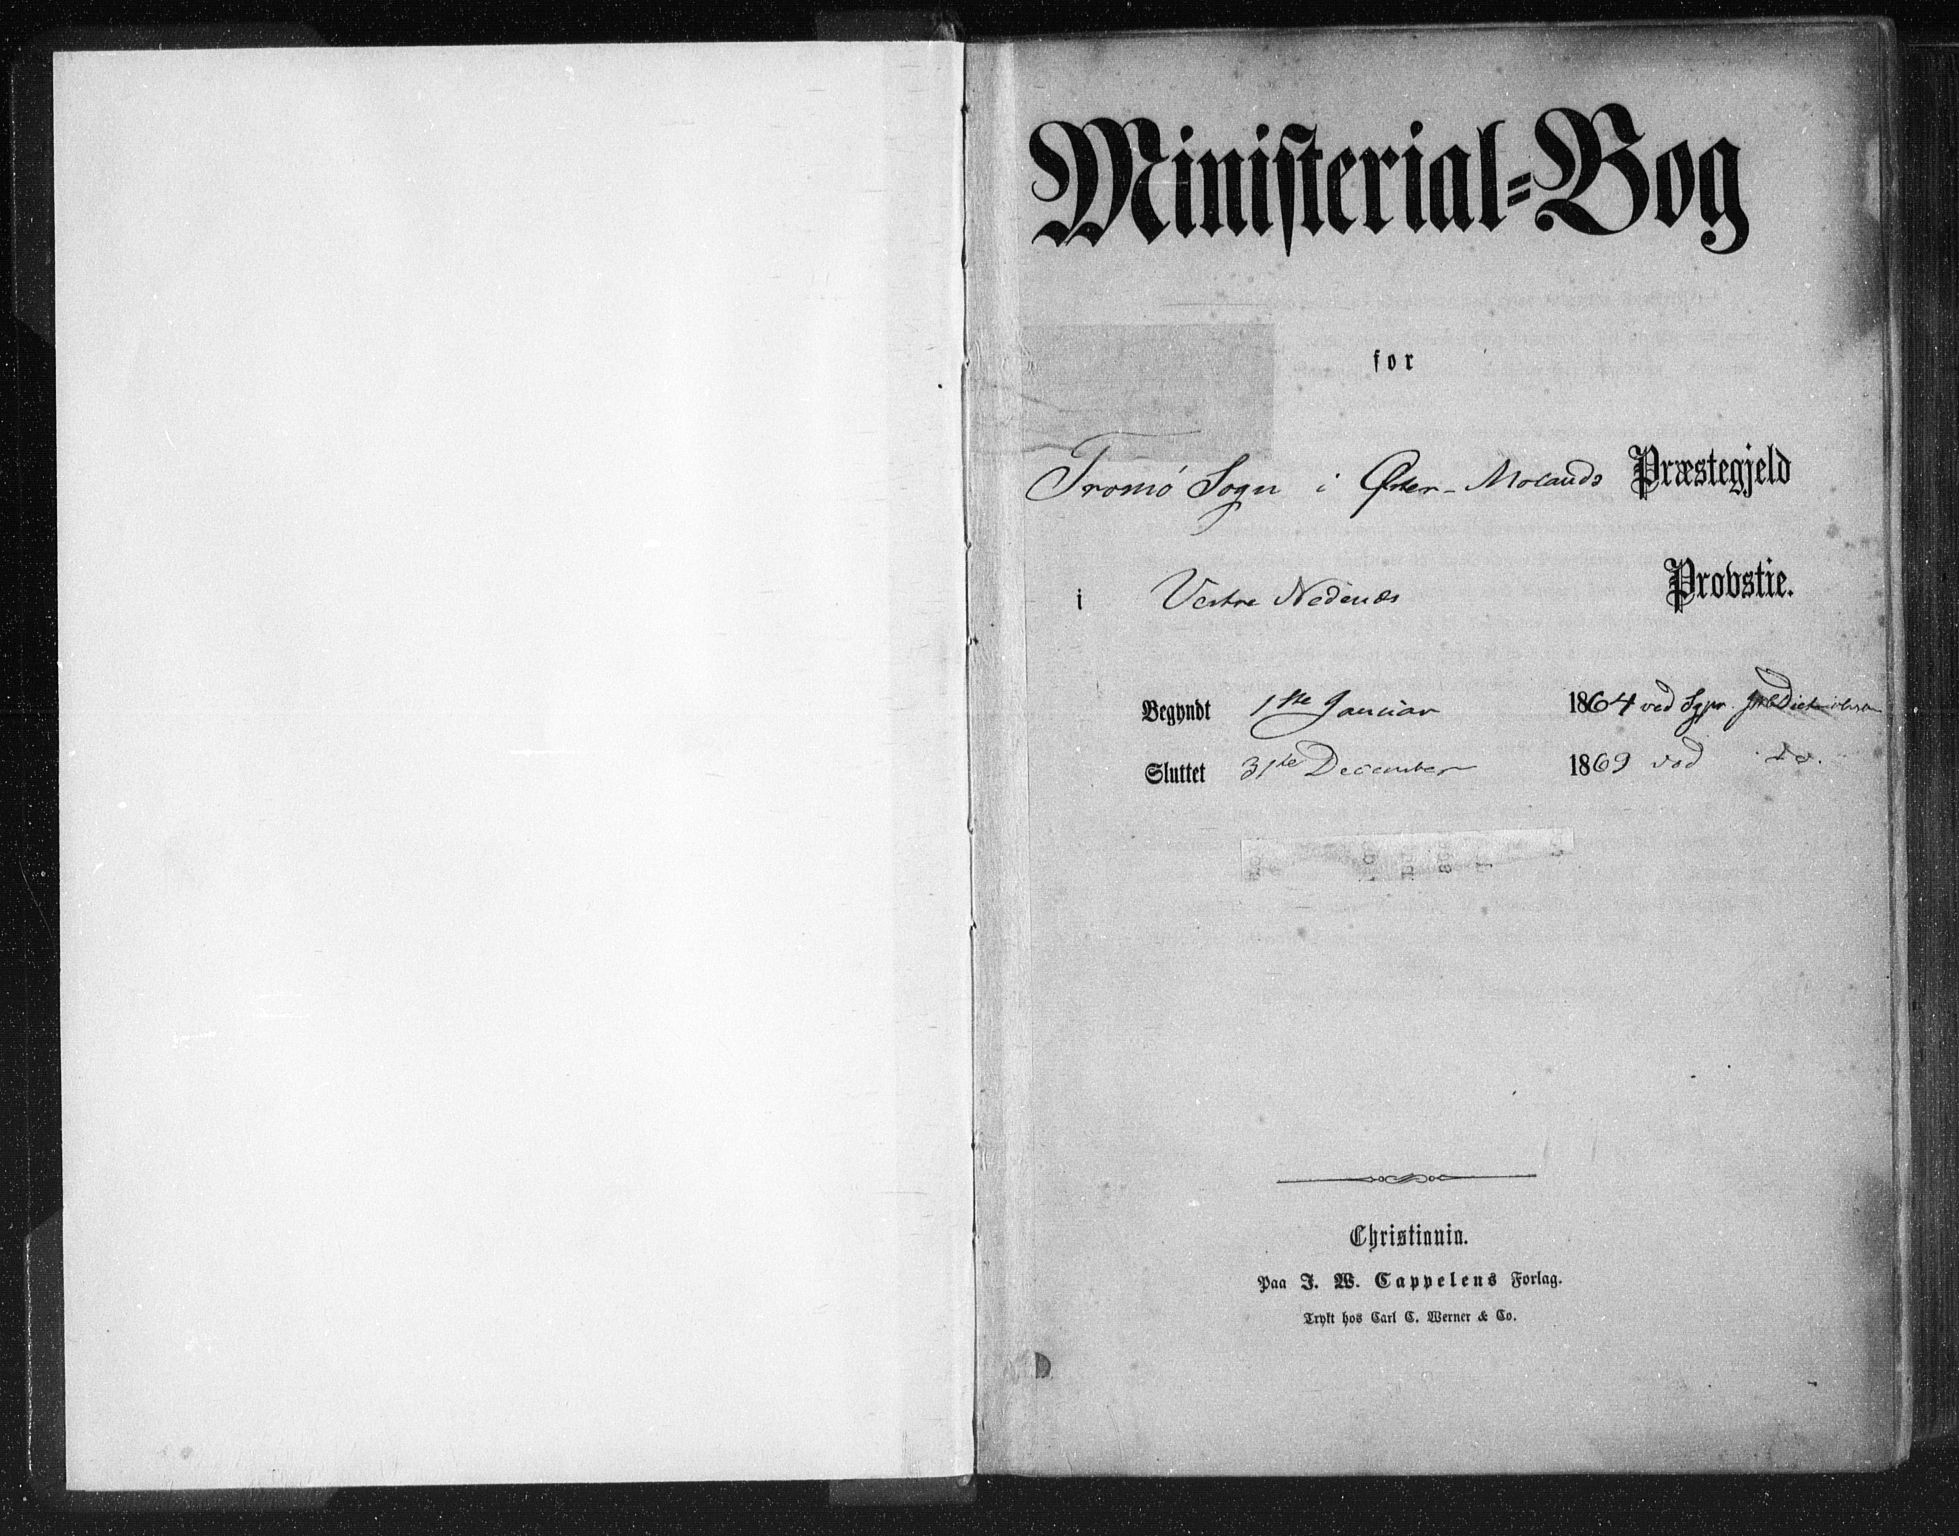 Ministerial-Bog
for
Tromø Sogn i Øster-Molands Præstegjeld
i Vestre Nedenæs Provstie.
Begyndt 1ste Januar 1864 ved Sgpr.
Sluttet 31te December 1869 ved do.
Christiania.
Paa J. W. Cappelens Forlag.
Trykt hos Carl C. Werner & Co.